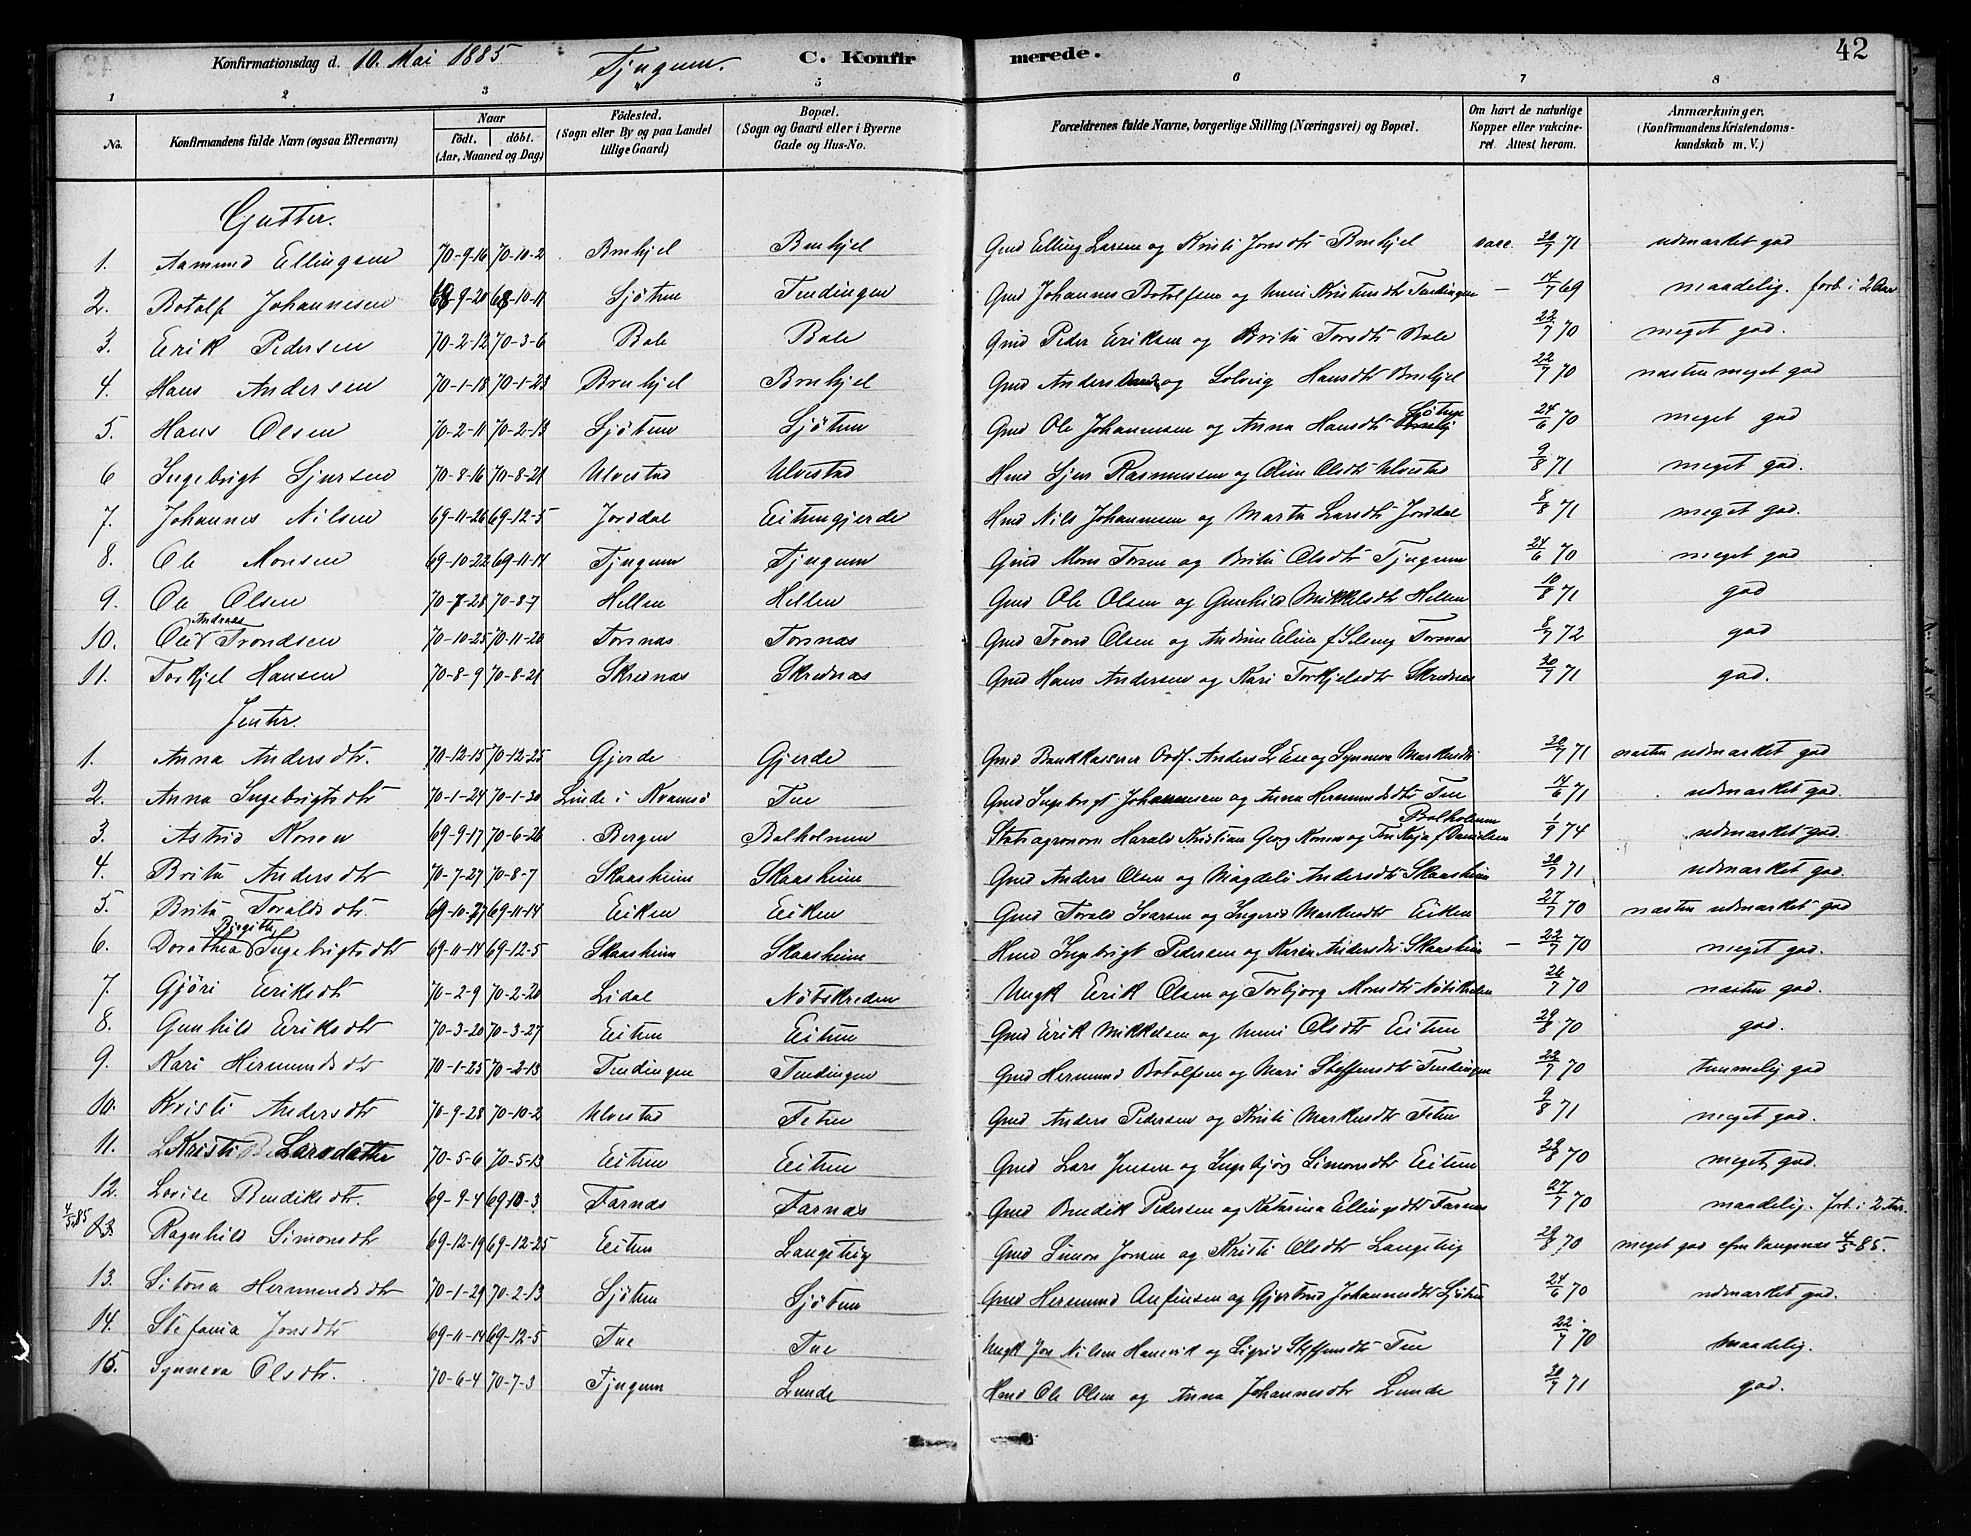 Konfirmationsdag d. 10. Mai 1885 Tjugum. C. Konfirmerede. 42
1 2 3 4 5 6 7 8
No. Konfirmandens fulde Navn (ogsaa Efternavn) Naar født. døbt. (Aar, Maaned og Dag) Fødested. (Sogn eller By og paa Landet tillige Gaard) Bopæl. (Sogn og Gaard eller i Byerne Gade og Hus-No. Forældrenes fulde Navne, borgerlige Stilling (Næringsvei) og Bopæl. Om havt de naturlige Kopper eller vakcineret. Attest herom. Anmærkninger. (Konfirmandens Kristendomskundskab m. V.)
Gutter.
1. Aamund Ellingsen 70-9-16 70-10-2 Brnhjel Brnhjel Gmd Elling Larsen og Kristi Jonsdtr Brnhjel vacc. 20/7 71 udmærket god
2. Botolf Johannesen 68-9-20 68-10-11 Sjøtun Tendingen Gmd Johannes Botolfsen og Unni Kristensdtr Tendingen — 14/7 69 maadelig. forb. i 2 Aar
3. Erik Pedersen 70-2-12 70-3-6 Bale Bale Gmd Peder Eriksen og Brita Torsdtr Bale 22/7 70 meget god.
4. Hans Andersen 70-1-18 70-1-23 Brnhjel Brnhjel Gmd Anders og Solveig Hansdtr Brnhjel 22/7 70 næsten meget god
5. Hans Olsen 70-2-11 70-2-13 Sjøtun Sjøtun Gmd Ole Johannesen og Anna Hansdtr Sjøtun 24/6 70 meget god
6 Ingebrigt Sjursen 70-8-16 70-8-21 Ulvestad Ulvestad Hmd Sjur Rasmussen og Olina Olsdtr Ulvestad 9/8 71 meget god.
7. Johannes Nilsen 69-11-26 69-12-5 Jordal Eitungjerde Hmd Nils Johannesen og Marta Larsdtr Jordal 8/8 71 meget god.
8. Ole Monsen 69-10-22 69-11-14 Tjugum Tjugum Gmd Mons Torsen og Brita Olsdtr Tjugum 24/6 70 meget god
9. Ole Olsen 70-7-28 70-8-7 Hellen Hellen Gmd Ole Olsen og Gunhild Mikkelsdtr Hellen 10/8 71 god
10. Ole Andreas Trondsen 70-10-25 70-11-20 Torsnæs Torsnæs Gmd Trond Olsen og Andrine Elina f. Selseng Torsnæs 8/7 72 god
11. Torkjel Hansen 70-8-9 70-8-21 Skrednæs Skrednæs Gmd Hans Andersen og Kari Torkjelsdtr Skrednæs 20/7 71 god.
Jenter.
1. Anna Andersdtr. 70-12-15 70-12-25 Gjerde Gjerde Gmd Bankkasserer Ordf. Anders L Ese og Synneva Markusdtr 20/7 71 næsten udmærket god
2. Anna Ingebrigtsdtr 70-1-24 70-1-30 Linde i Kvamsø Tue Gmd Ingebrigt Johannesen og Anna Hermundsdtr Tue 14/6 71 udmærket god.
3. Astrid Konow 69-9-17 70-6-26 Bergen Balholmen Statsagronom Harald Kristian Georg Konow og Fru Kaja f. Danielsen Balholmen 1/9 74 udmærket god.
4. Brita Andersdtr 70-7-27 70-8-7 Skaasheim Skaasheim Gmd Anders Olsen og Magdeli Andersdtr Skaasheim 20/7 71 udmærket god.
5. Brita Toraldsdtr. 69-10-27 69-11-14 Eiken Eiken Gmd Torald Ivarsen og Ingerid Markusdtr Eiken 27/7 70 næsten udmærket god
6. Dorothea Birgitte Ingebrigtsdtr 69-11-14 69-12-5 Skaasheim Skaasheim Hmd Ingebrigt Pedersen og Karen Andersdtr Skaasheim — 22/7 70 meget god.
7. Gjøri Eriksdtr 70-2-9 70-2-20 Lidal Nøtskreden Ungk Erik Olsen og Torbjørg Monsdtr Nøtskreden 26/7 70 næsten god.
8. Gunhild Eriksdtr 70-3-20 70-3-27 Eitun Eitun Gmd Erik Mikkelsen og Unni Olsdtr Eitun 29/8 70 god.
9. Kari Hermundsdtr 70-1-25 70-2-13 Tendingen Tendingen Gmd Hermund Botolfsen og Mari Steffensdtr Tendingen 22/7 70 temmelig god
10. Kristi Andersdtr 70-9-28 70-10-2 Ulvestad Feten Gmd Anders Pedersen og Kristi Markusdtr Feten 9/8 71 meget god.
11. Kristi Larsdatter 70-5-6 70-5-13 Eitun Eitun Gmd Lars Jensen og Ingebjørg Simonsdtr Eitun 29/8 70 meget god.
12. Lovise Bendiksdtr. 69-9-4 69-10-3 Farnæs Farnæs Gmd Bendik Pedersen og Katarina Ellingsdtr Farnæs 27/7 70 maadelig. forb. i 2 Aar.
4/5 85 13 Ragnhild Simonsdtr 69-12-19 69-12-25 Eitun Langeteig Gmd Simon Jonsen og Kristi Olsdtr Langeteig 29/8 70 meget god cfm Vangsnæs 4/5-85.
13. Sitona Hermundsdtr 70-1-29 70-2-13 Sjøtun Sjøtun Gmd Hermund Anfinsen og Gjertrud Johannesdtr Sjøtun 24/6 70 udmærket god.
14. Stefania Jonsdtr 69-11-14 69-12-5 Tue Tue Ungk Jon Nilsen Hamrik og Sigrid Steffensdtr Tue 22/7 70 maadelig.
15. Synneva Olsdtr. 70-6-4 70-7-3 Tjugum Lunde Hmd Ole Olsen og Anna Johannesdtr Lunde 20/7 71 god.